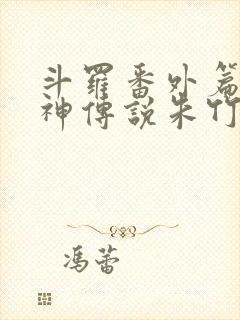 斗羅番外篇
神傳說朱竹
馮蕾